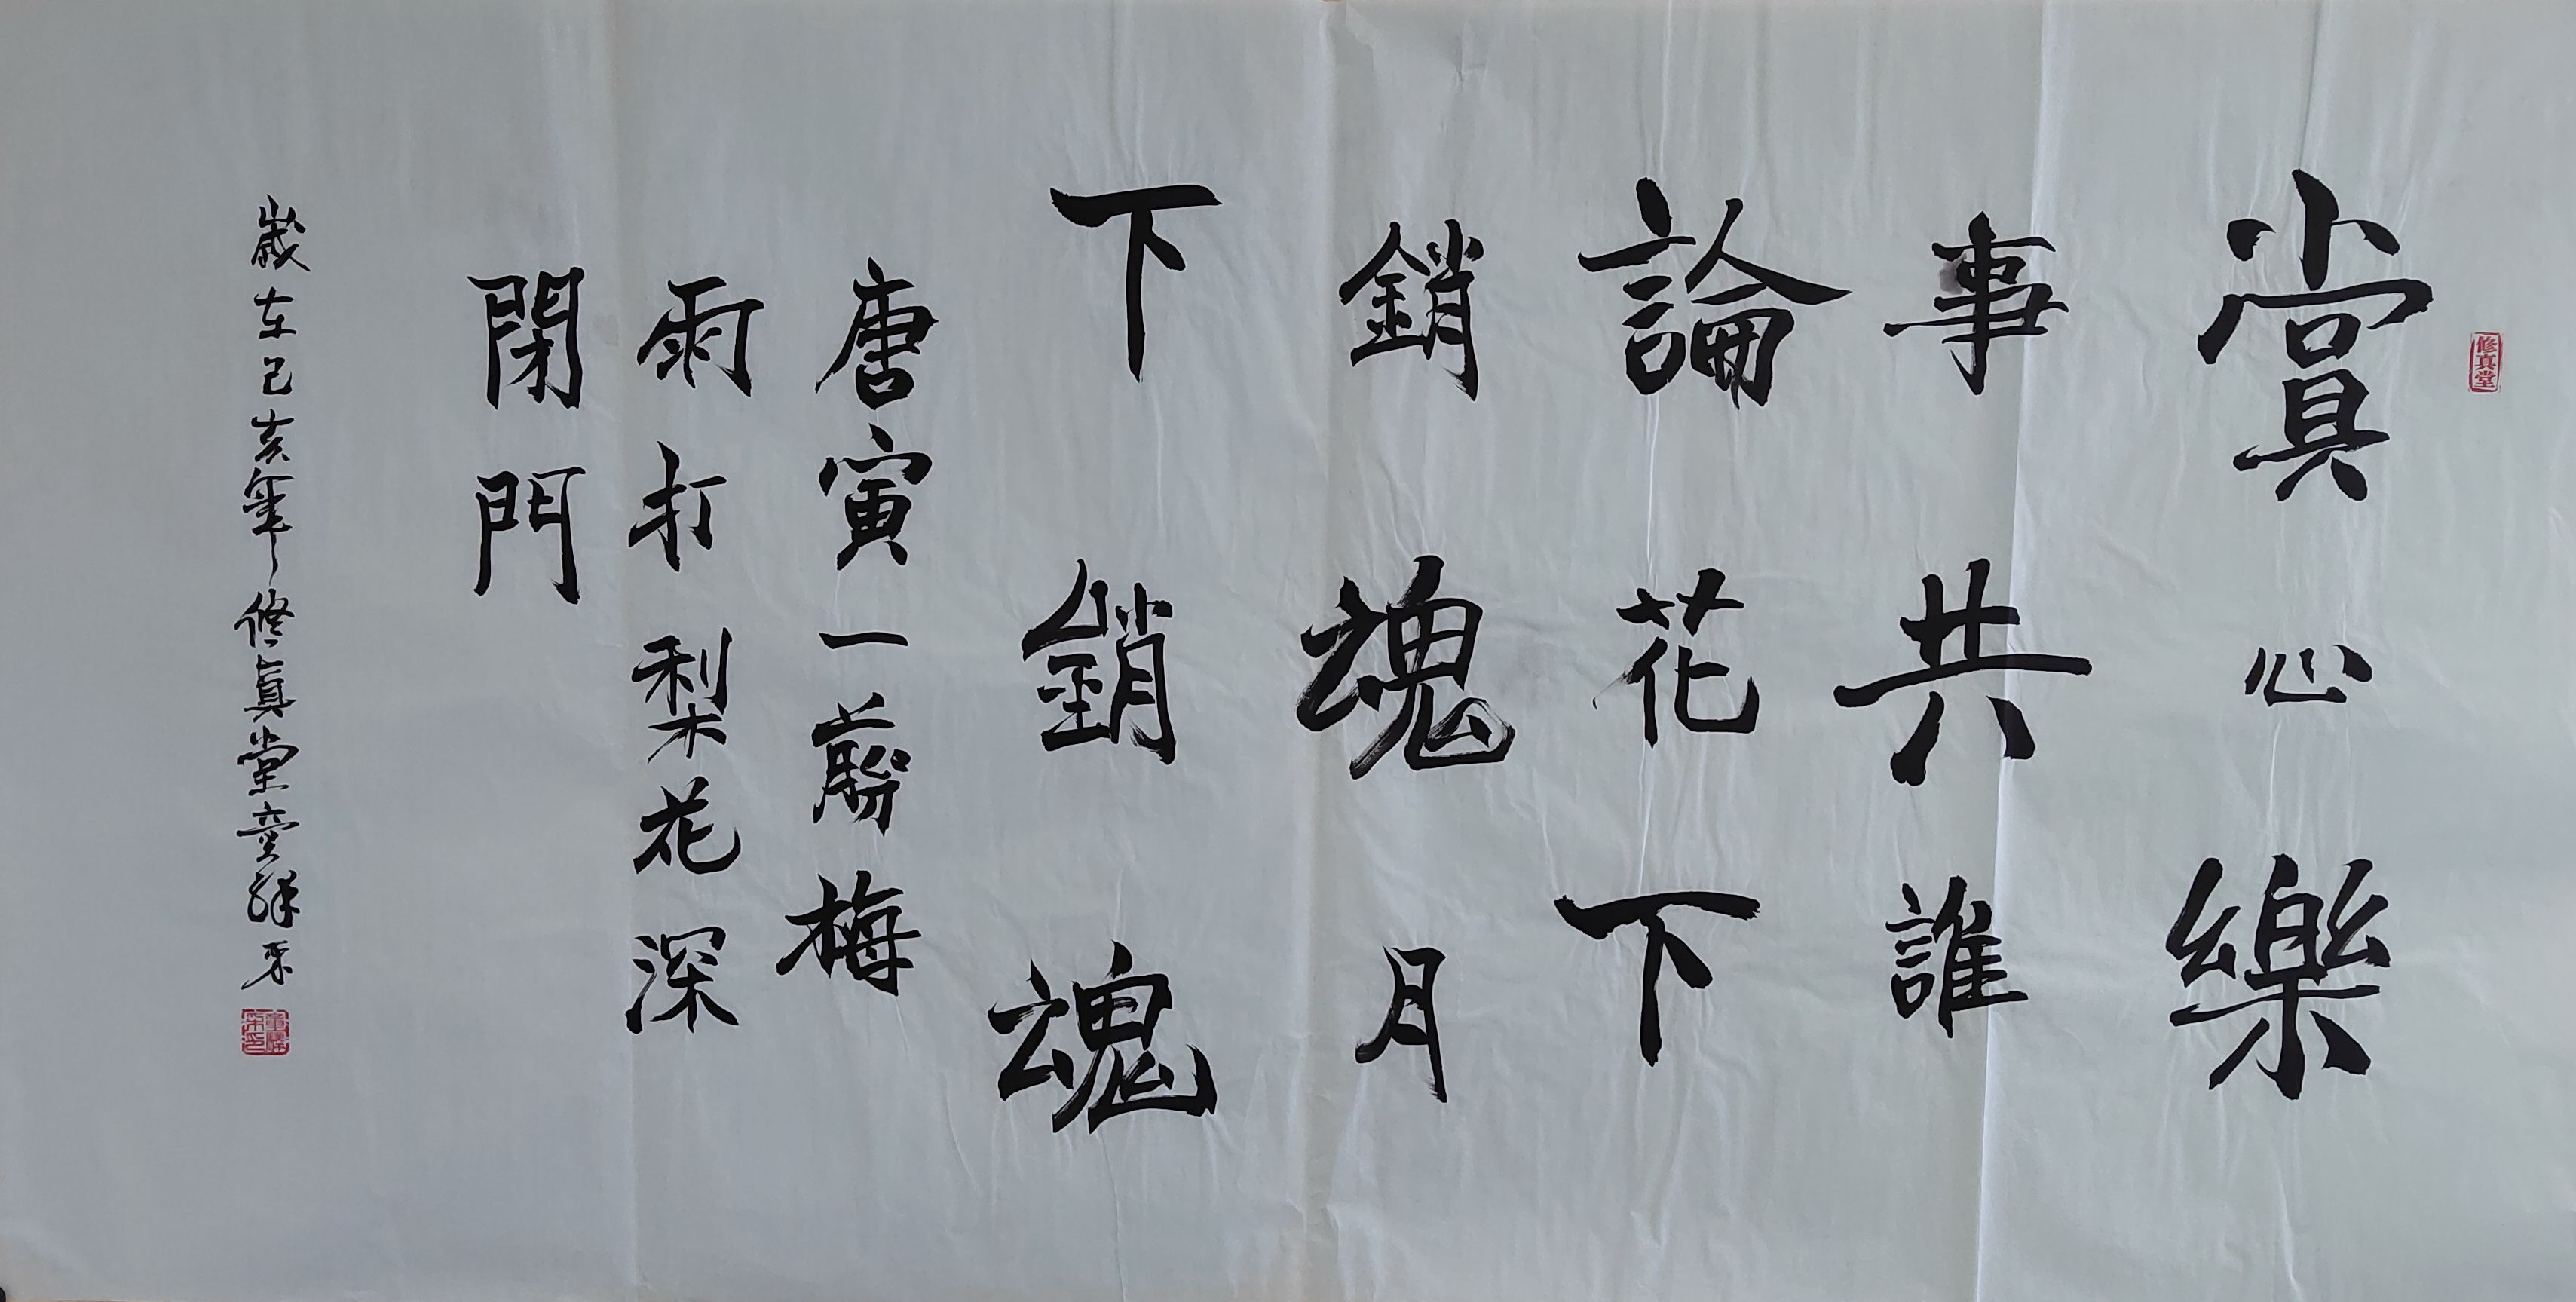 修真堂
賞心樂
事共誰
論花下
銷魂月
下銷魂
唐寅一翦梅
雨打梨花深
閉門
歲在己亥年修真堂童繹采